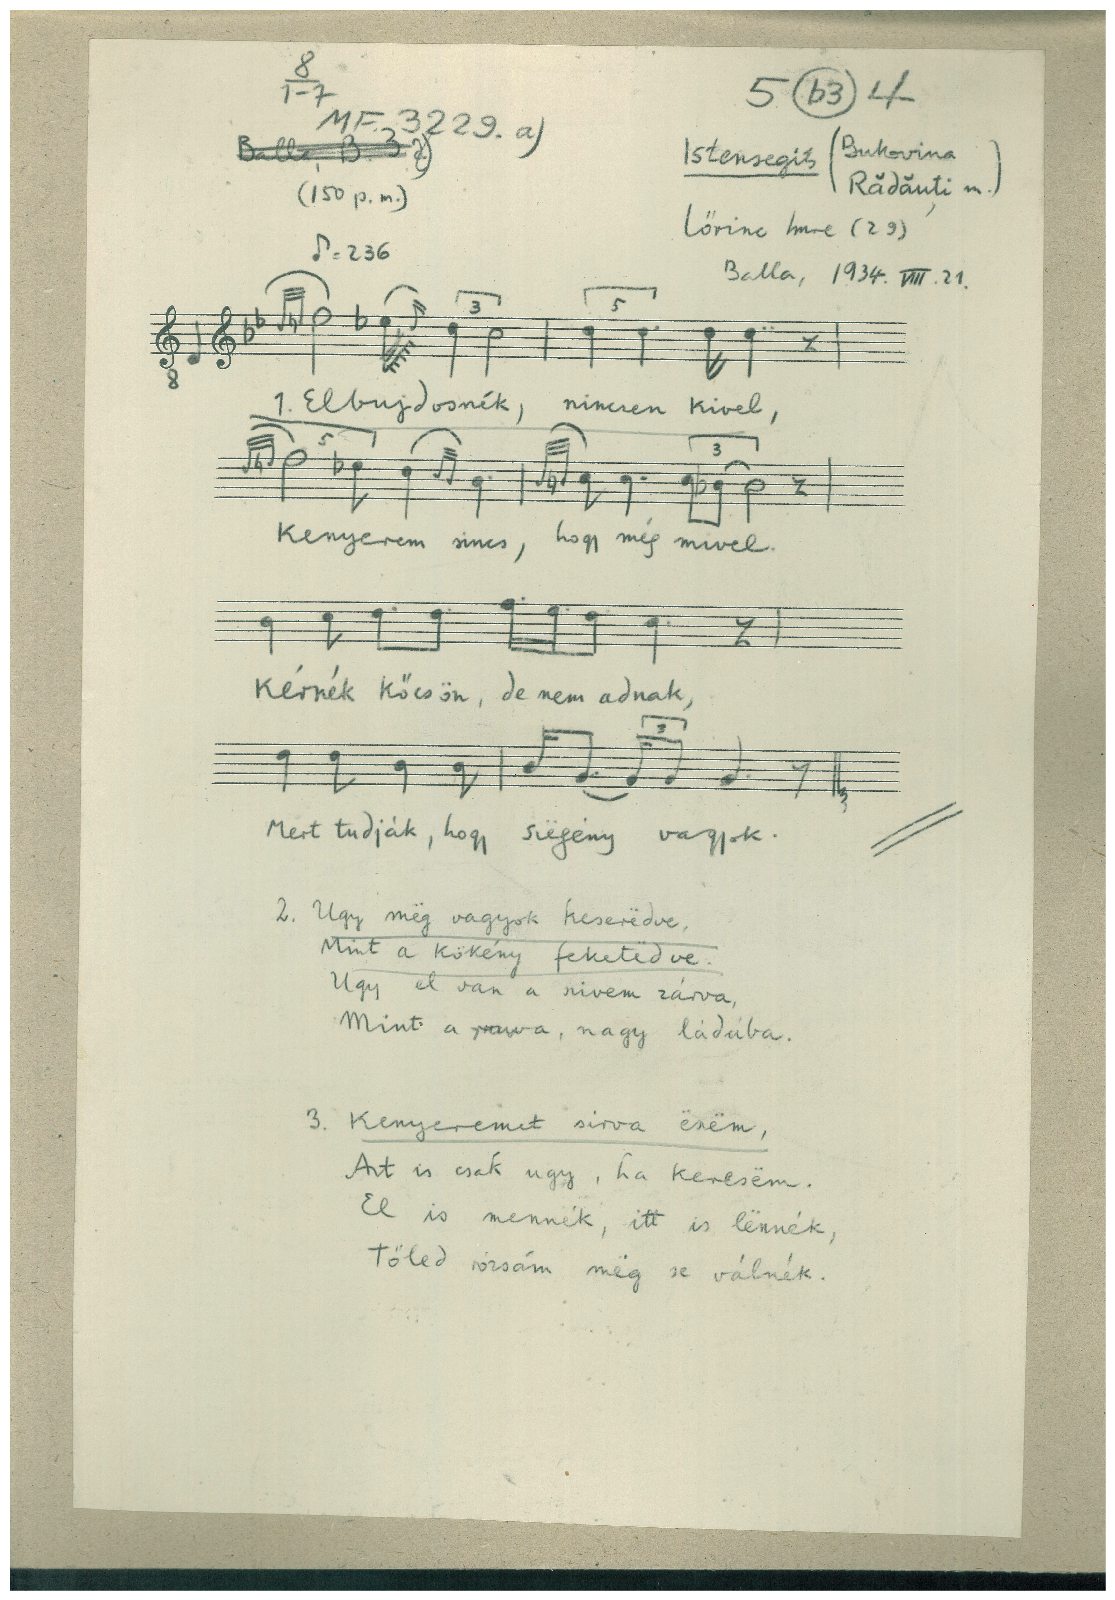 8
1-7
MF. 3229. a)
Balla, B. 3 a)
(150 p. m.)
♪ = 236
5 (b3) 4
Istensegíts (Bukovina
Rădăuți m.)
Lőrinc Imre (29)
Balla, 1934. VIII. 21.
3
5
8
1. Elbujdosnék, nincsen kivel,
5
3
Kenyerem sincs, hogy még mivel.
Kérnék kőcsön, de nem adnak,
3
Mert tudják, hogy szëgény vagyok.
2. Ugy mëg vagyok keserëdve,
Mint a kökény feketëdve.
Ugy el van a szivem zárva,
Mint a, nagy ládába.
3. Kenyeremet sirva ëszëm,
Azt is csak ugy, ha keresëm.
El is mennék, itt is lënnék,
Tőled rózsám mëg se válnék.